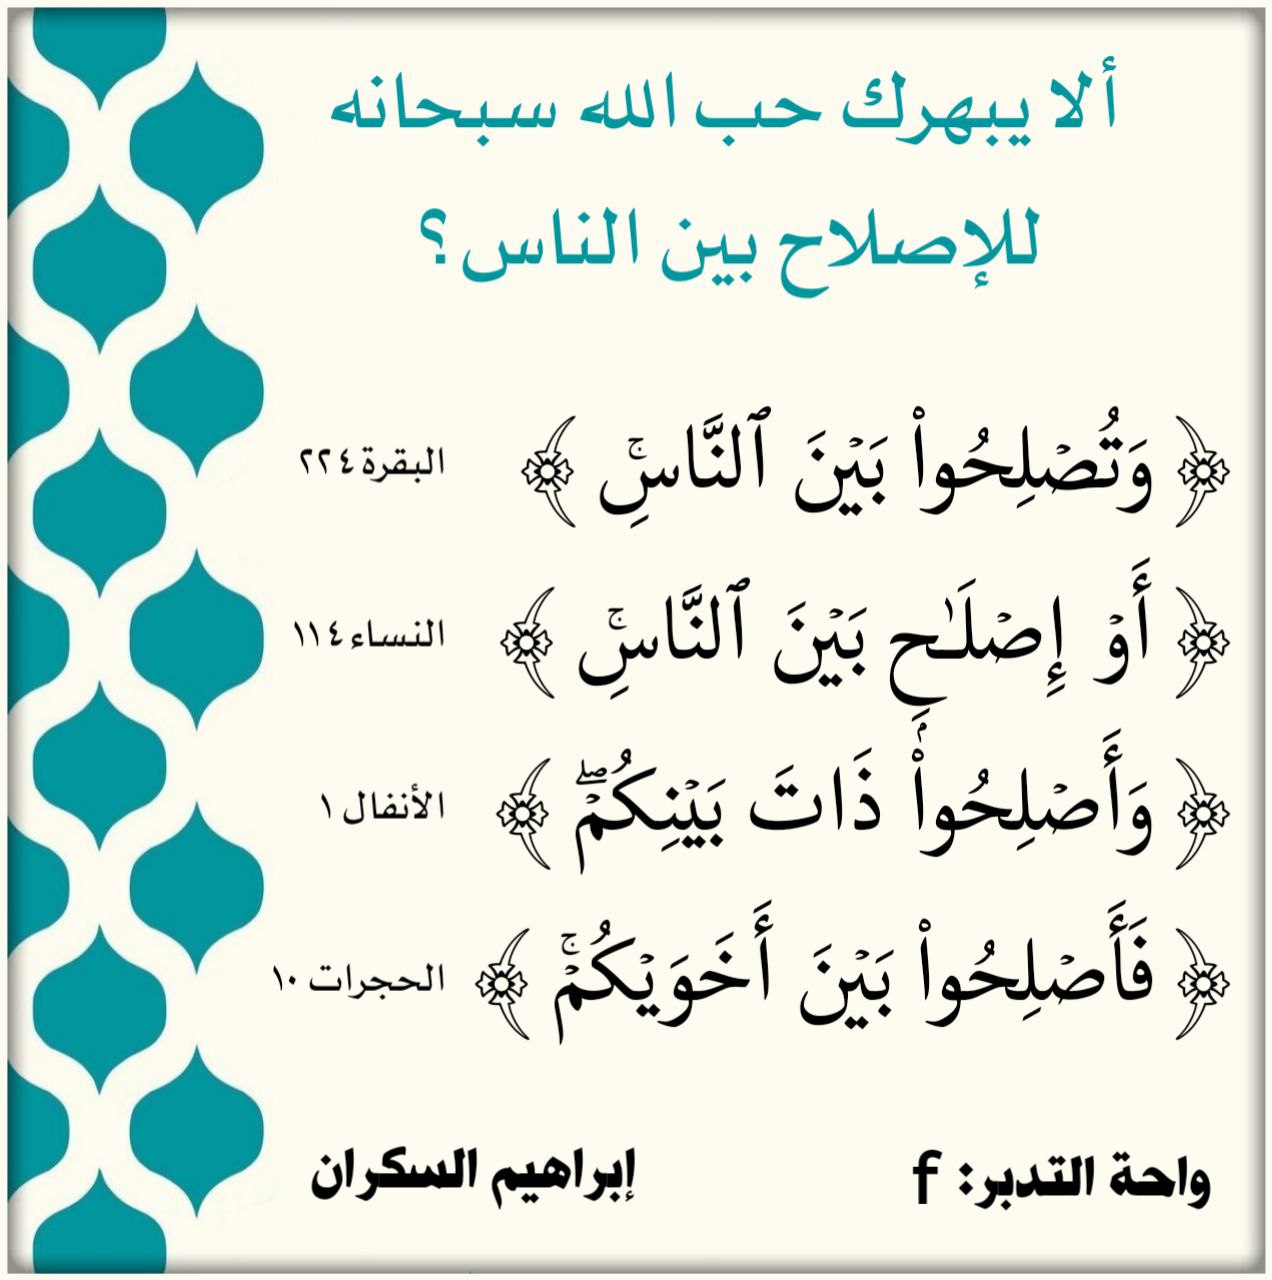 ألا يبهرك حب الله سبحانه
للإصلاح بين الناس؟
﴿ وَتُصْلِحُوا۟ بَيْنَ ٱلنَّاسِۚ ﴾ البقرة ٢٢٤
﴿ أَوْ إِصْلَـٰحٍۭ بَيْنَ ٱلنَّاسِۚ ﴾ النساء ١١٤
﴿ وَأَصْلِحُوا۟ ذَاتَ بَيْنِكُمْۖ ﴾ الأنفال ١
﴿ فَأَصْلِحُوا۟ بَيْنَ أَخَوَيْكُمْۚ ﴾ الحجرات ١٠
واحة التدبر: f إبراهيم السكران